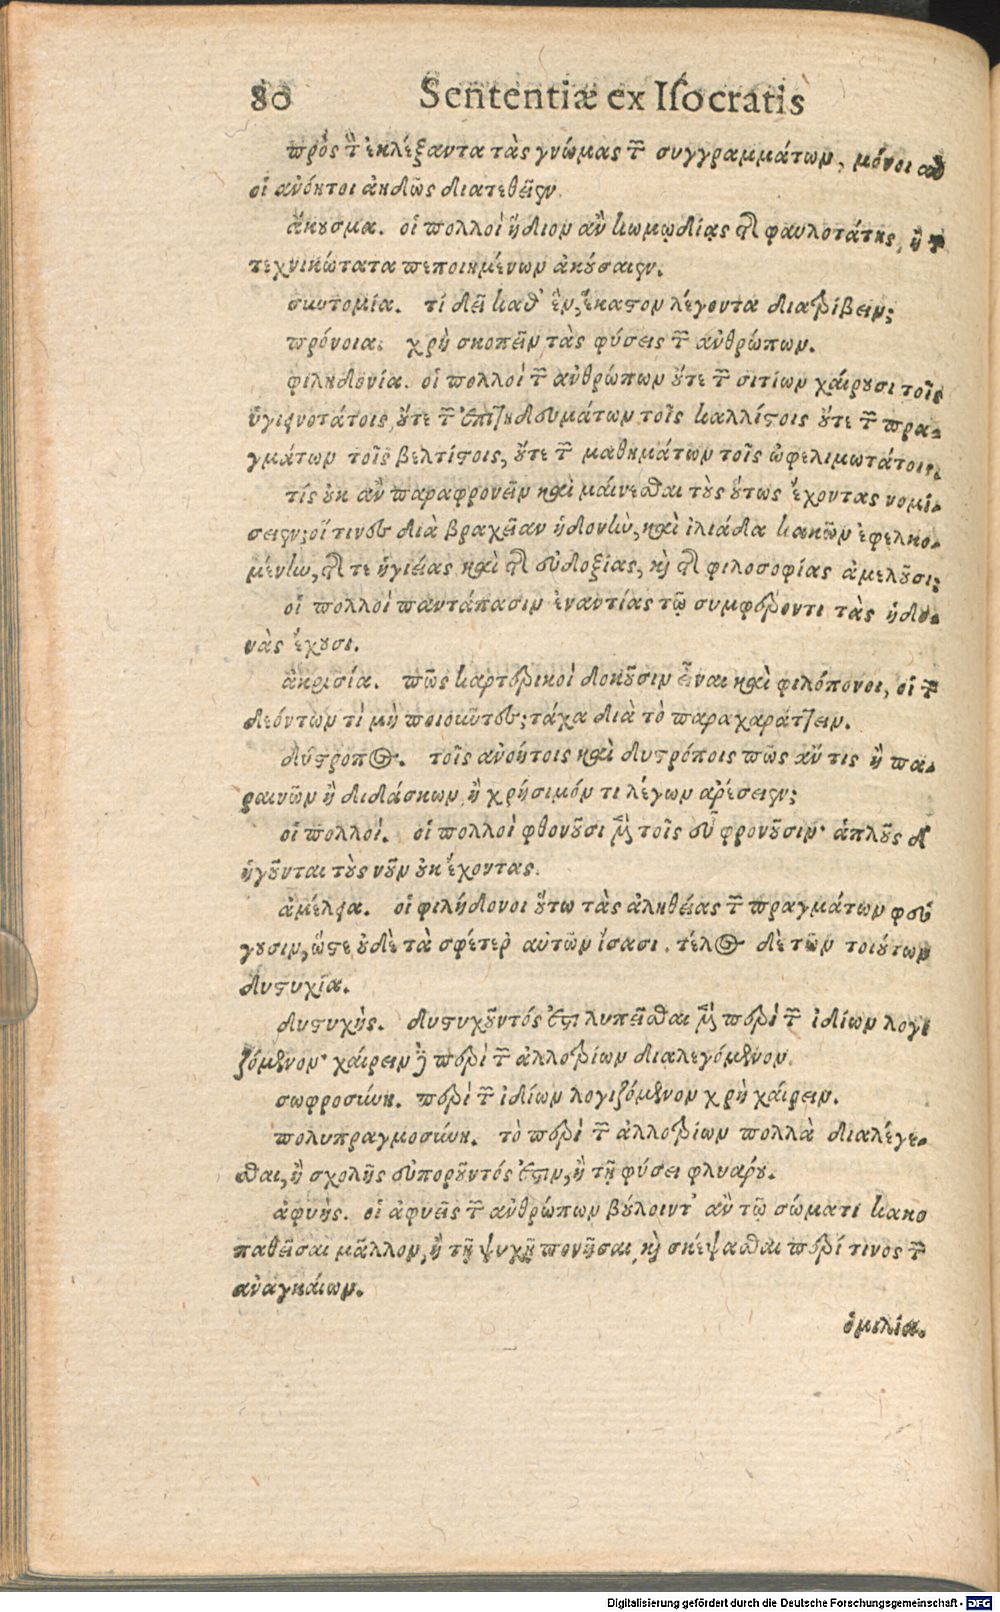 80 Sententiæ ex Isocratis
πρὸς τὸν ἐκλέξαντα τὰς γνώμας τῶν συγγραμμάτων, μόνοι ἂν
οἱ ἀνόητοι ἀηδῶς διατεθεῖεν.
ἄκουσμα. οἱ πολλοὶ ἥδιον ἂν κωμῳδίας τῆς φαυλοτάτης, ἢ τῶν
τεχνικώτατα πεποιημένων ἀκούσαιεν.
σκυτομία. τί δεῖ καθ' ἓν, ἕκαστον λέγοντα διατρίβειν;
πρόνοια. χρὴ σκοπεῖν τὰς φύσεις τῶν ἀνθρώπων.
φιληδονία. οἱ πολλοὶ τῶν ἀνθρώπων οὔτε τῶν σιτίων χαίρουσι τοῖς
ὑγιεινοτάτοις, οὔτε τῶν ἐπιτηδευμάτων τοῖς καλλίστοις οὔτε τῶν πρα-
γμάτων τοῖς βελτίστοις, οὔτε τῶν μαθημάτων τοῖς ὠφελιμωτάτοις.
τίς οὐκ ἂν παραφρονεῖν καὶ μαίνεσθαι τοὺς οὕτως ἔχοντας νομί-
σειεν; οἵτινες διὰ βραχεῖαν ἡδονὴν, καὶ ἰλιάδα κακῶν ἐφελκο-
μένην, τῆς τε ὑγιείας καὶ τῆς εὐδοξίας, καὶ τῆς φιλοσοφίας ἀμελοῦσι;
οἱ πολλοὶ παντάπασιν ἐναντίας τῷ συμφέροντι τὰς ἡδο-
νὰς ἔχουσι.
ἀκρισία. πῶς καρτερικοὶ δοκοῦσιν εἶναι καὶ φιλόπονοι, οἱ τῶν
δεόντων τὶ μὴ ποιοῦντες; τάχα διὰ τὸ παραχαράττειν.
δύστροπος. τοῖς ἀνοήτοις καὶ δυστρόποις πῶς ἄν τις ἢ πα-
ραινῶν ἢ διδάσκων, ἢ χρήσιμόν τι λέγων ἀρέσειεν;
οἱ πολλοί. οἱ πολλοὶ φθονοῦσι μὲν τοῖς εὖ φρονοῦσιν· ἁπλοῦς δ'
ἡγοῦνται τοὺς νοῦν οὐκ ἔχοντας.
ἀμέλεια. οἱ φιλήδονοι οὕτω τὰς ἀληθείας τῶν πραγμάτων φεύ
γουσιν, ὥστε οὐδὲ τὰ σφέτερα αὐτῶν ἴσασι. τέλος δὲ τῶν τοιούτων
δυστυχία.
δυστυχής. δυστυχοῦντός ἐστι λυπεῖσθαι μὲν περὶ τῶν ἰδίων λογι
ζόμενον· χαίρειν δὲ περὶ τῶν ἀλλοτρίων διαλεγόμενον.
σωφροσύνη. περὶ τῶν ἰδίων λογιζόμενον χρὴ χαίρειν.
πολυπραγμοσύνη. τὸ περὶ τῶν ἀλλοτρίων πολλὰ διαλέγε-
σθαι, ἢ σχολῆς εὐποροῦντός ἐστιν, ἢ τῇ φύσει φλυάρου.
ἀφυής. οἱ ἀφυεῖς τῶν ἀνθρώπων βούλοιντ' ἂν τῷ σώματι κακο
παθεῖσαι μᾶλλον, ἢ τῇ ψυχῇ πονῆσαι, καὶ σκέψασθαι περί τινος τῶν
ἀναγκαίων.
ὁμιλία.
Digitalisierung gefördert durch die Deutsche Forschungsgemeinschaft - DFG